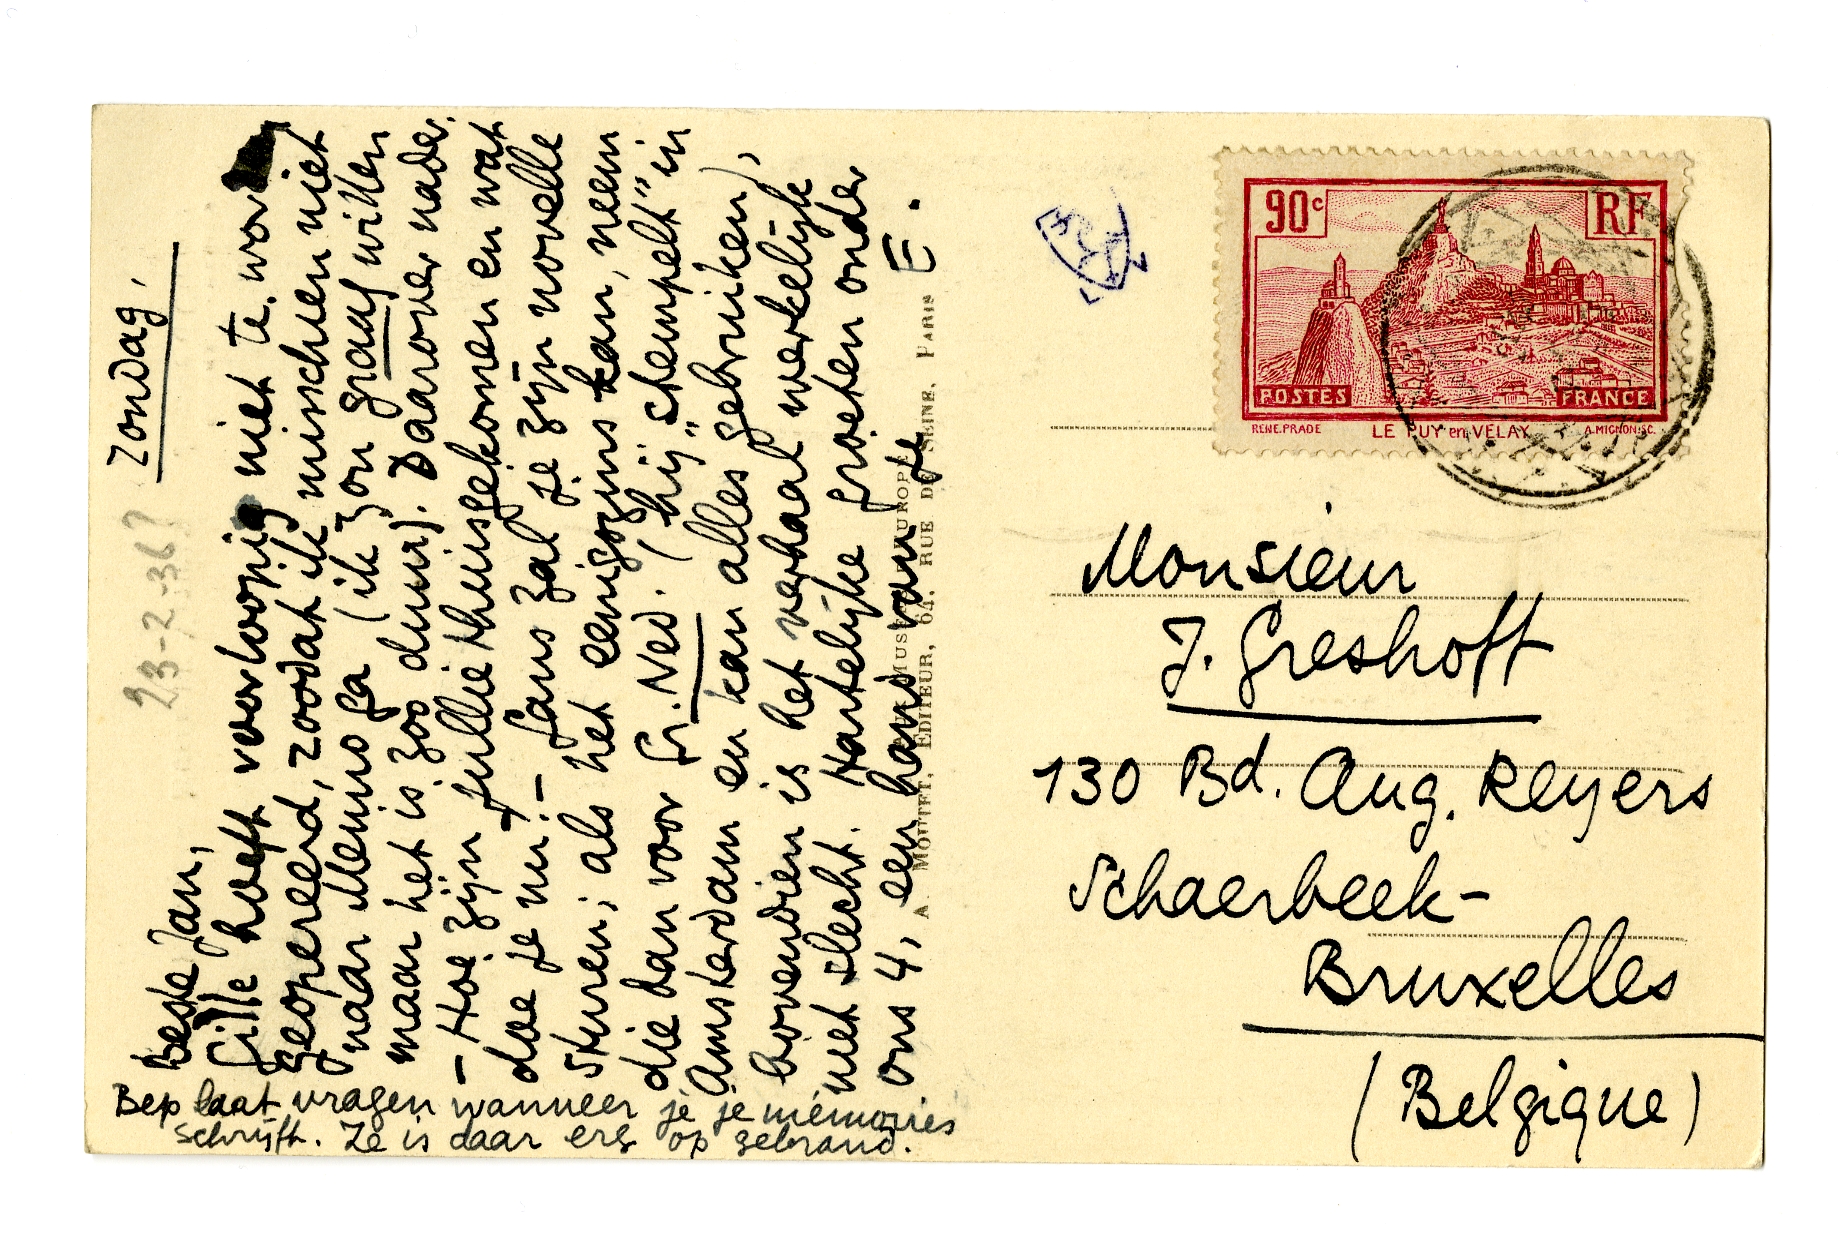 Zondag.
23-2-36?
Beste Jan,
Gille hoeft voorloopig niet te wor
geopereerd, zoodat ik misschien niet
naar Menno ga (ik zou graag willen
maar het is zoo duur). Daarover nader.
— Hoe zijn jullie thuisgekomen en wat
doe je nu? — Jans zal je zijn novelle
sturen; als het eenigszins kan, neem
die dan voor Gr. Ned. (hij „stempelt” in
Amsterdam en kan alles gebruiken),
bovendien is het verhaal werkelijk
niet slecht. Hartelijke groeten onder
ons 4, een hand van je
E.
Bep laat vragen wanneer je je mémoires
schrijft. Ze is daar erg op gebrand.
A. MOUTET, EDITEUR, 64, RUE DE SEINE, PARIS
90c
RF
POSTES
FRANCE
RENE.PRADE
LE PUY en VELAY
A.MIGNON.SC.
Monsieur
J. Greshoff
130 Bd. Aug. Reyers
Schaerbeek-
Bruxelles
(Belgique)